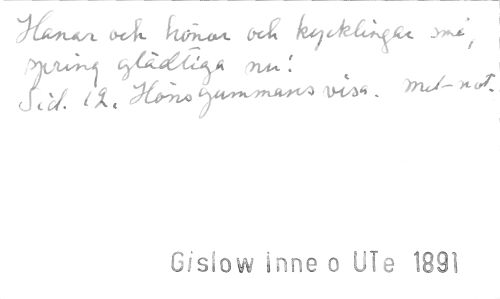 Hanar och hönor och kycklingar små,
spring glädtiga nu!
Sid. 12. Hönsgummans visa. med not.
Gislow Inne o UTe 1891